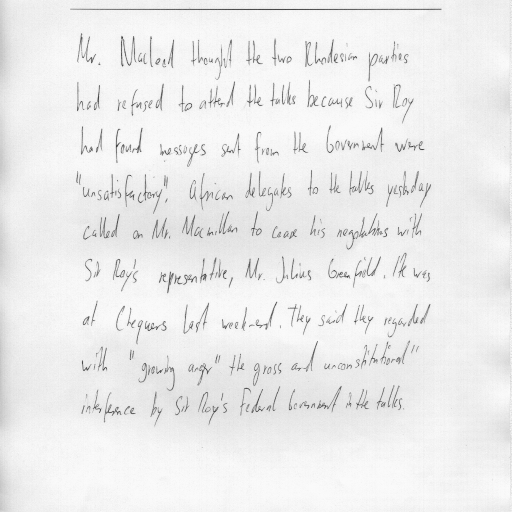 Mr. Macleod thought the two Rhodesian parties
had refused to attend the talks because Sir Roy
had found messages sent from the Government were
"unsatisfactory". African delegates to the talks yesterday
called on Mr. Macmillan to cease his negotiations with
Sir Roy's representative, Mr. Julius Greenfield. He was
at Chequers last weekend. They said they regarded
with "growing anger" the gross and unconstitutional"
interference by Sir Roy's Federal Government in the talks.